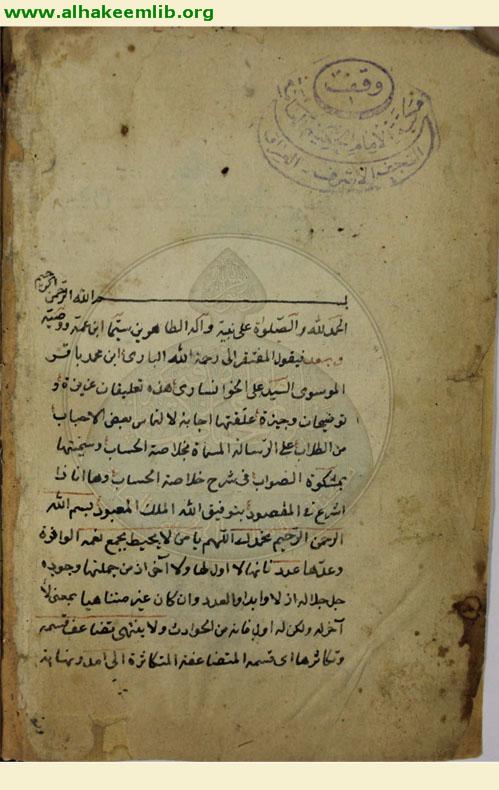 www.alhakeemlib.org
وقف
النجف الاشرف - العراق
بسم الله الرحمن الرحيم
الحمد لله والصلوة على نبيه وآله الطاهرين سيما ابن عمه ووصيه
وبعد فيقول المفتقر الى رحمة الله البارى ابن محمد باقر
الموسوى السيد على الخوانسارى هذه تعليقات عزيزة و
توضيحات وجيزة علقتها اجابة لالتماس بعض الاحباب
من الطلاب على الرسالة المسماة بخلاصة الحساب وسميتها
بمشكوة الصواب فى شرح خلاصة الحساب وها انا ذا
اشرع فى المقصود بتوفيق الله الملك المعبود بسم الله
الرحمن الرحيم نحمدك اللهم يا من لا يحيط بجميع نعمه الوافرة
وعدها عدد فانها لا اول لها ولا آخر اذ من جملتها وجوده
جل جلاله ازلا وابدا والعدد وان كان غير متناهيا بمعنى لا
آخر له ولكن له اول فانه من الحوادث ولا ينتهى تضاعف قسمه
وتكاثرها اى قسمه المتضاعفة المتكاثرة الى امد ونهاية